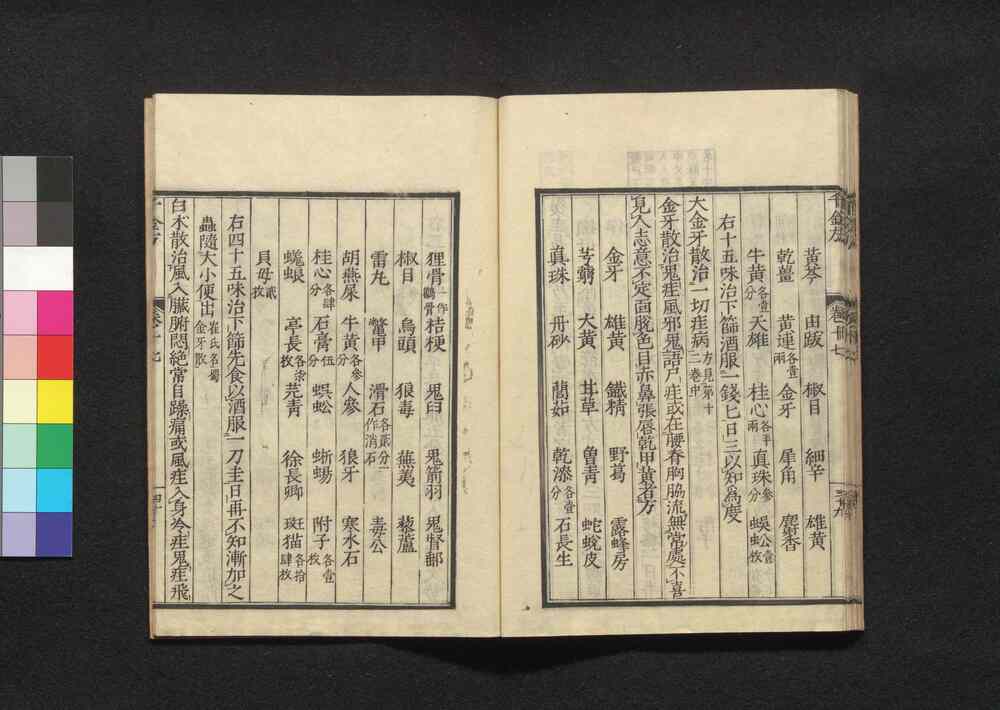 黄芩 由跋 椒目 細辛 雄黄
乾薑 黄連各壹兩 金牙 犀角 麝香
牛黄各壹分 天雄 桂心各半兩 真珠參分 蜈蚣壹枚
右十五味治下篩酒服一錢匕日三以知爲度
大金牙散治一切疰病方見第十二卷中
金牙散治鬼疰風邪鬼語尸疰或在腰脊胸脇流無常處不喜
見人志意不定面脫色目赤鼻張唇乾甲黄者方
金牙 雄黄 鐵精 野葛 露蜂房
芎藭 大黄 甘草 曾青 蛇蛻皮
真珠 丹砂 䕡茹 乾漆各壹分 石長生
狸骨一作鸛骨 桔梗 鬼臼 鬼箭羽 鬼督郵
椒目 烏頭 狼毒 蕪荑 藜蘆
雷丸 鼈甲 滑石各貳分一作消石 毒公
胡燕屎 牛黄各參分 人參 狼牙 寒水石
桂心各肆分 石膏伍分 蜈蚣 蜥蜴 附子各壹枚
蜣蜋 亭長各柒枚 芫青 徐長卿 斑猫各拾肆枚
貝母貳枚
右四十五味治下篩先食以酒服一刀圭日再不知漸加之
蟲隨大小便出崔氏名蜀金牙散
白朮散治風入臟腑悶絶常自躁痛或風疰入身冷疰鬼疰飛